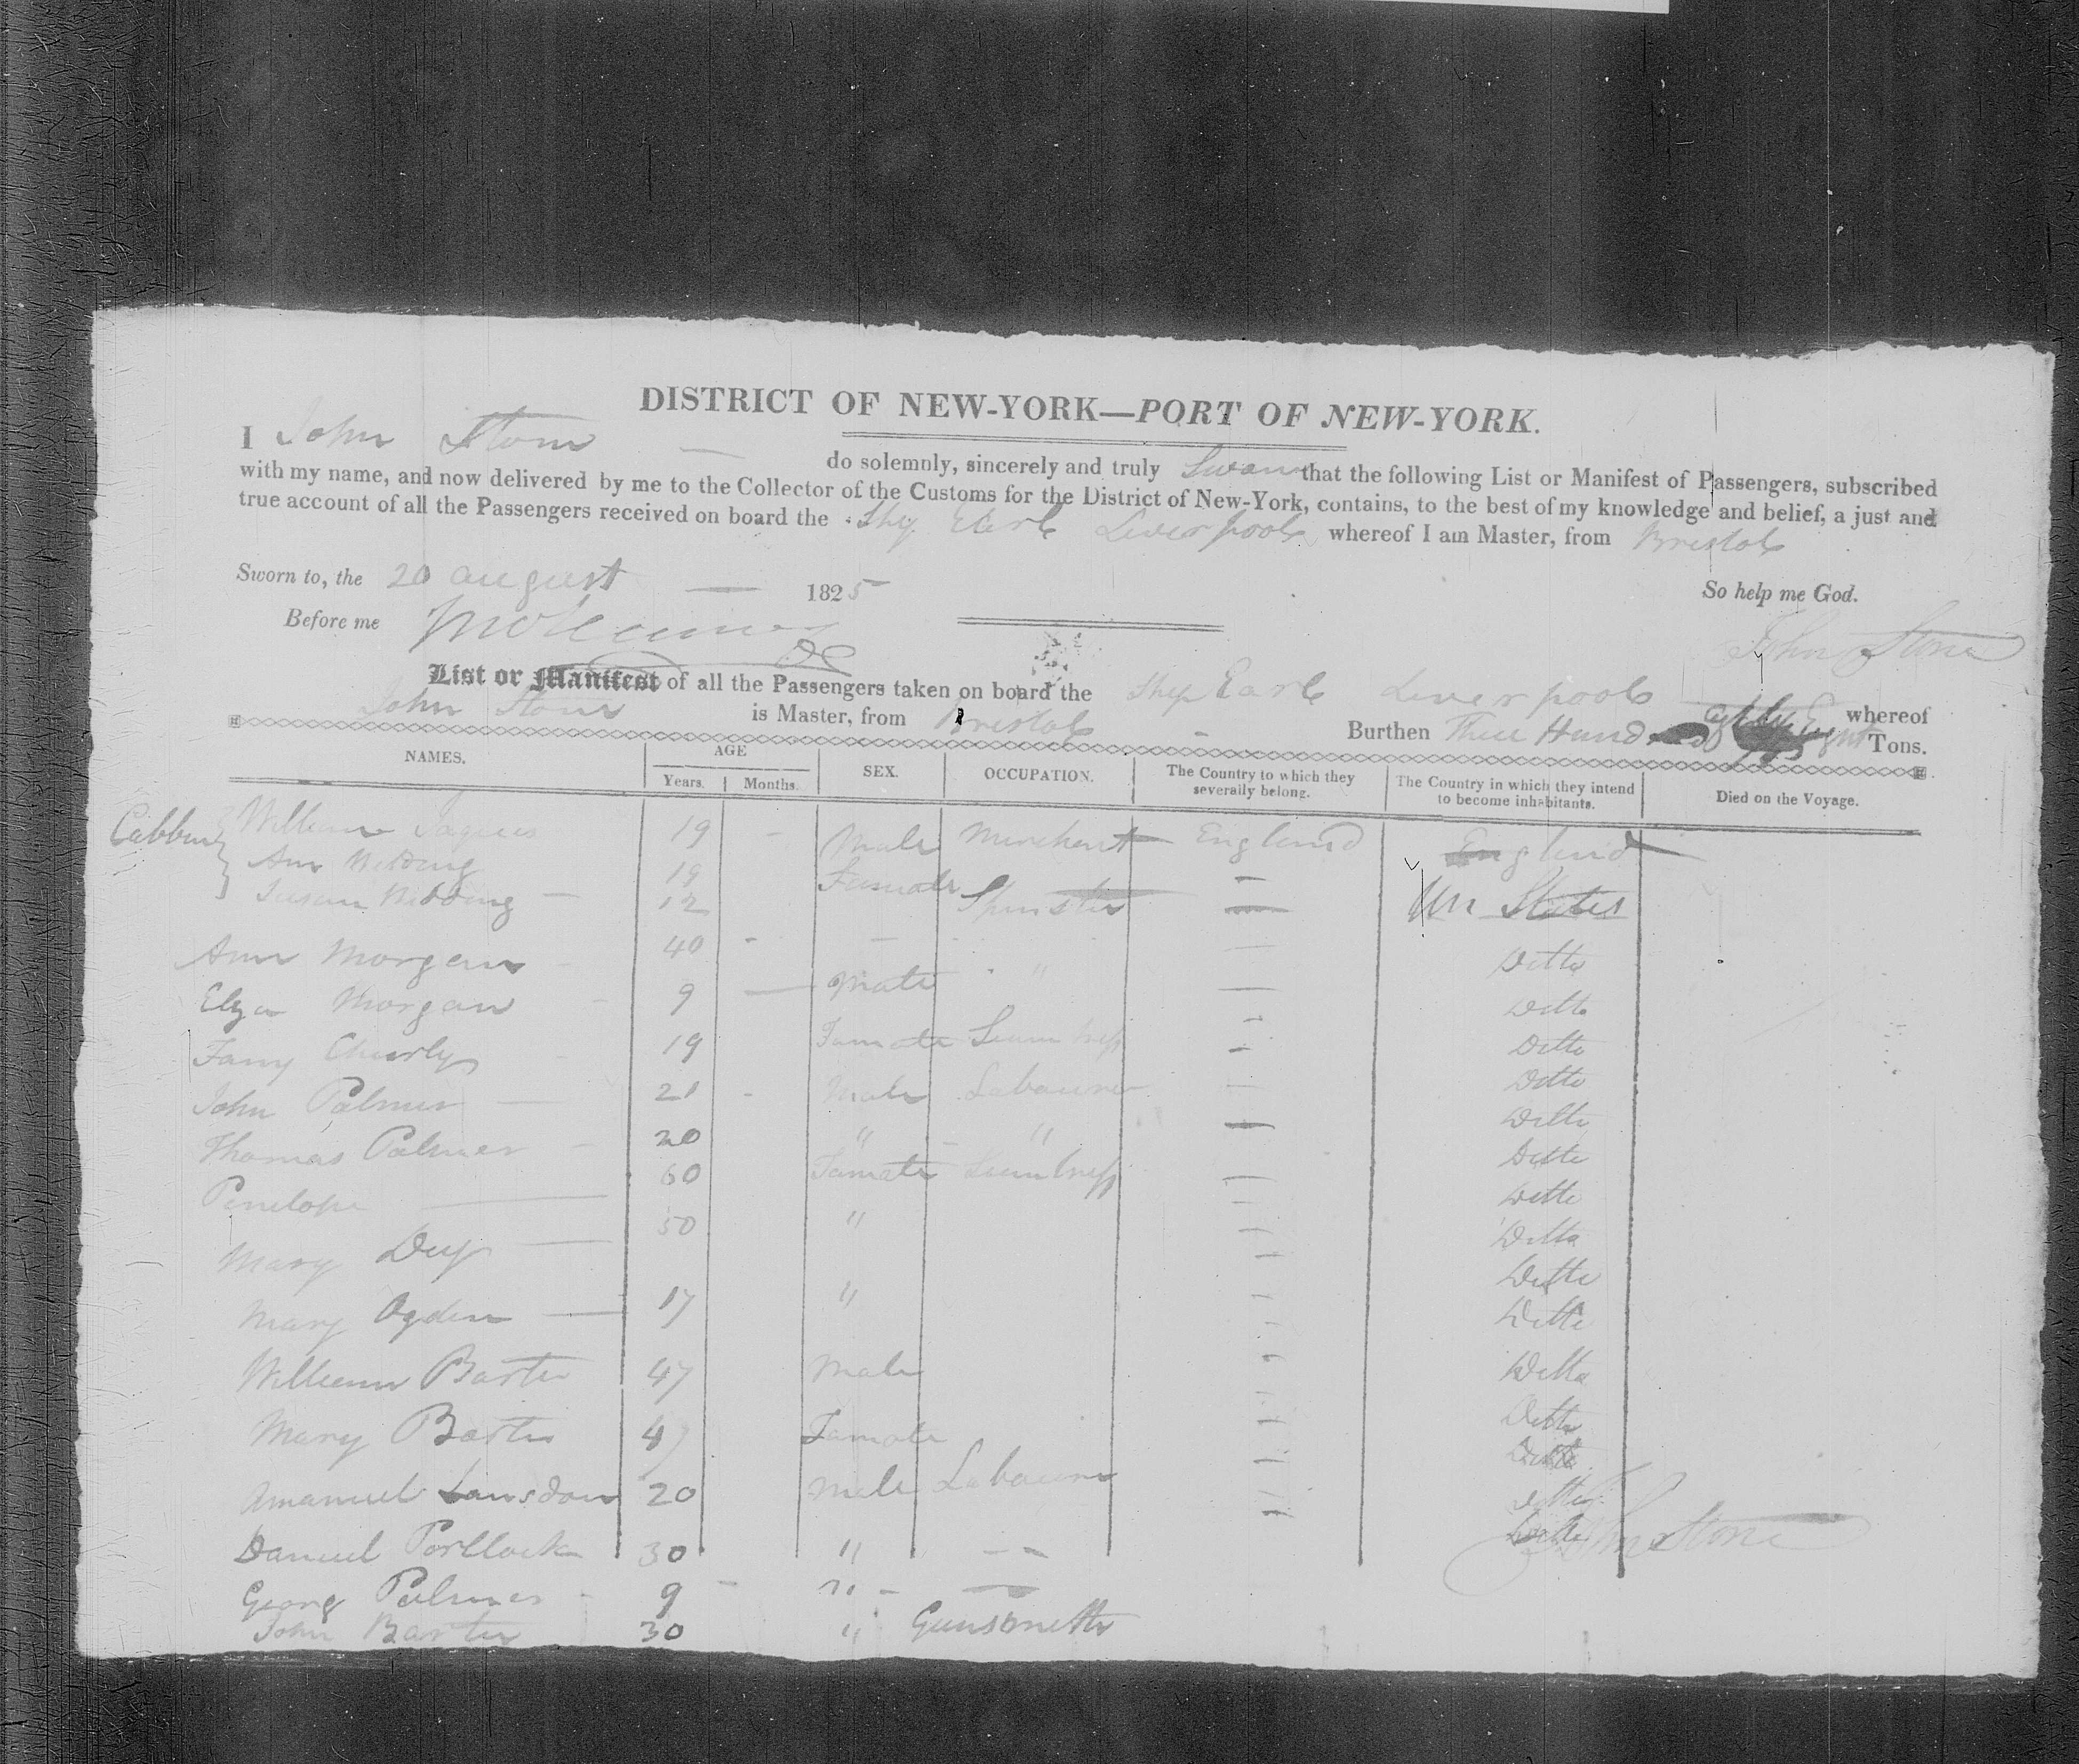 DISTRICT OF NEW-YORK—PORT OF NEW-YORK.
I John Stone — do solemnly, sincerely and truly Swear that the following List or Manifest of Passengers, subscribed
with my name, and now delivered by me to the Collector of the Customs for the District of New-York, contains, to the best of my knowledge and belief, a just and
true account of all the Passengers received on board the Ship Earl Liverpool whereof I am Master, from Bristol
Sworn to, the 20 august — 1825 So help me God.
Before me John Stone
List or Manifest of all the Passengers taken on board the Ship Earl Liverpool whereof
John Stone is Master, from Bristol Burthen Three Hundred Eighty Eight Tons.
NAMES. AGE Years. Months. SEX. OCCUPATION. The Country to which they severally belong. The Country in which they intend to become inhabitants. Died on the Voyage.
Cabbin William Jaques 19 - Male Merchant England England
Ann 19 Female — Un States
Susan — 12 Spinster —
Ann Morgan - 40 - — — Ditto
Elza Morgan - 9 — Male " — Ditto
Fany - 19 Female — Ditto
John Palmer — 21 - Male Labourer — Ditto
Thomas Palmer - 20 " " — Ditto
Penelope — 60 Female — Ditto
Mary — 50 " — Ditto
Mary Ogden — 17 " — Ditto
William Barter 47 Male — Ditto
Mary Barter 47 Female — Ditto
Amanuel Lansdown 20 Male Labourer — Ditto
Daniel Porllock 30 " — Ditto
John Stone
Georg Palmer - 9 - " - —
John Barter 30 " Gunsmith